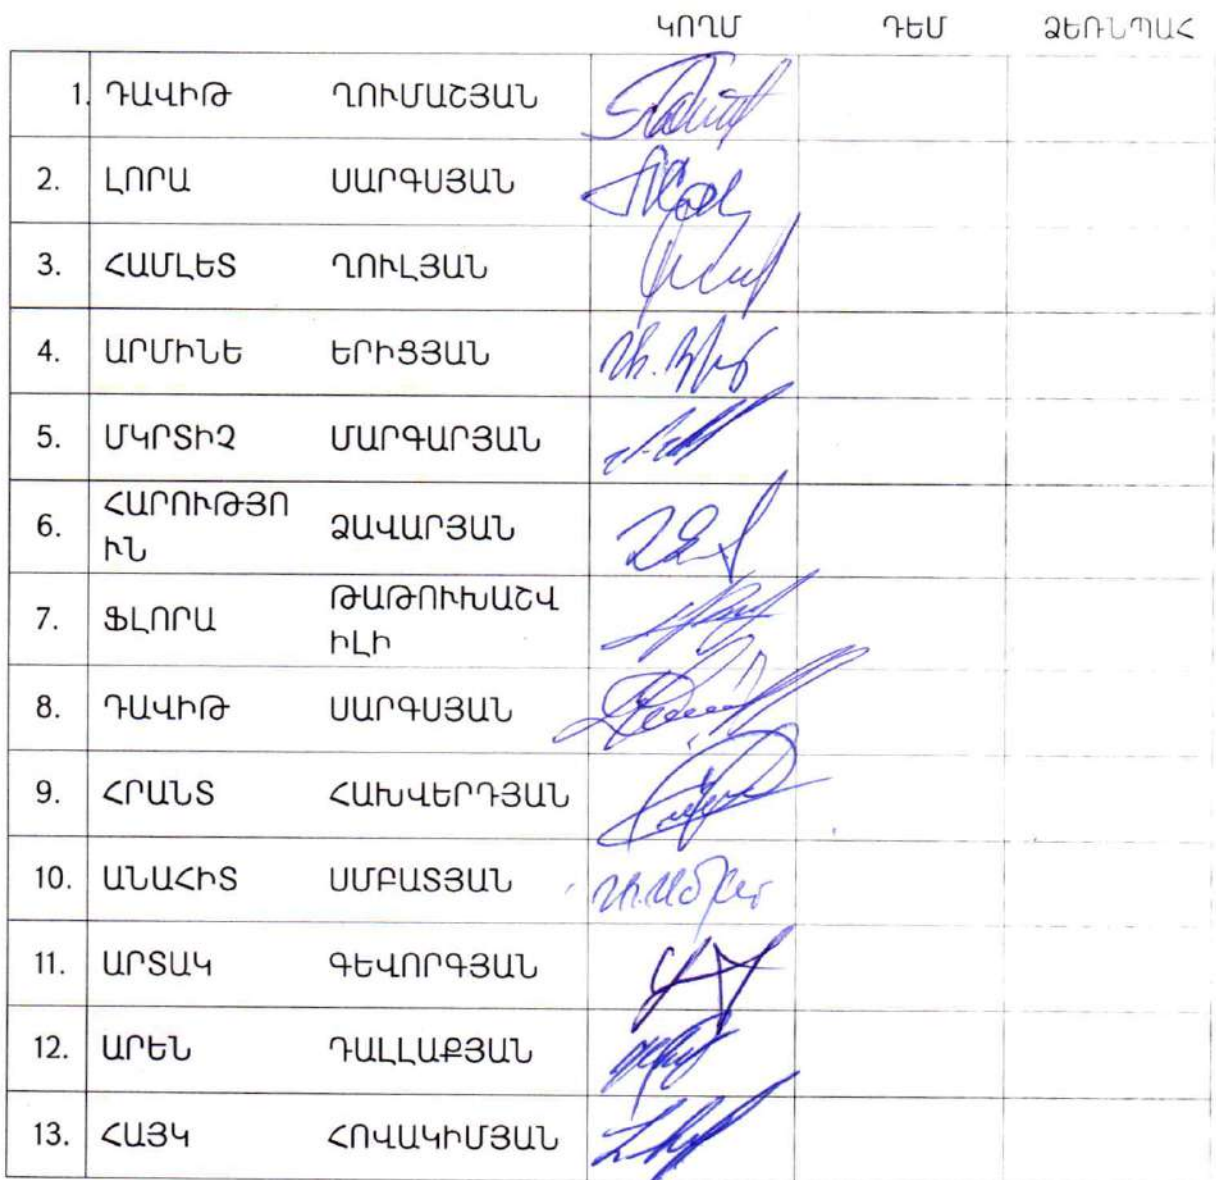 ԿՈՂՄ ԴԵՄ ՁԵՌՆՊԱՀ
1. ԴԱՎԻԹ ՂՈՒՄԱՇՅԱՆ
2. ԼՈՐԱ ՍԱՐԳՍՅԱՆ
3. ՀԱՄԼԵՏ ՂՈՒԼՅԱՆ
4. ԱՐՄԻՆԵ ԵՐԻՑՅԱՆ
5. ՄԿՐՏԻՉ ՄԱՐԳԱՐՅԱՆ
6. ՀԱՐՈՒԹՅՈ ՁԱՎԱՐՅԱՆ
ՒՆ
7. ՖԼՈՐԱ ԹԱԹՈՒԽԱՇՎ
ԻԼԻ
8. ԴԱՎԻԹ ՍԱՐԳՍՅԱՆ
9. ՀՐԱՆՏ ՀԱԽՎԵՐԴՅԱՆ
10. ԱՆԱՀԻՏ ՍՄԲԱՏՅԱՆ
11. ԱՐՏԱԿ ԳԵՎՈՐԳՅԱՆ
12. ԱՐԵՆ ԴԱԼԼԱՔՅԱՆ
13. ՀԱՅԿ ՀՈՎԱԿԻՄՅԱՆ